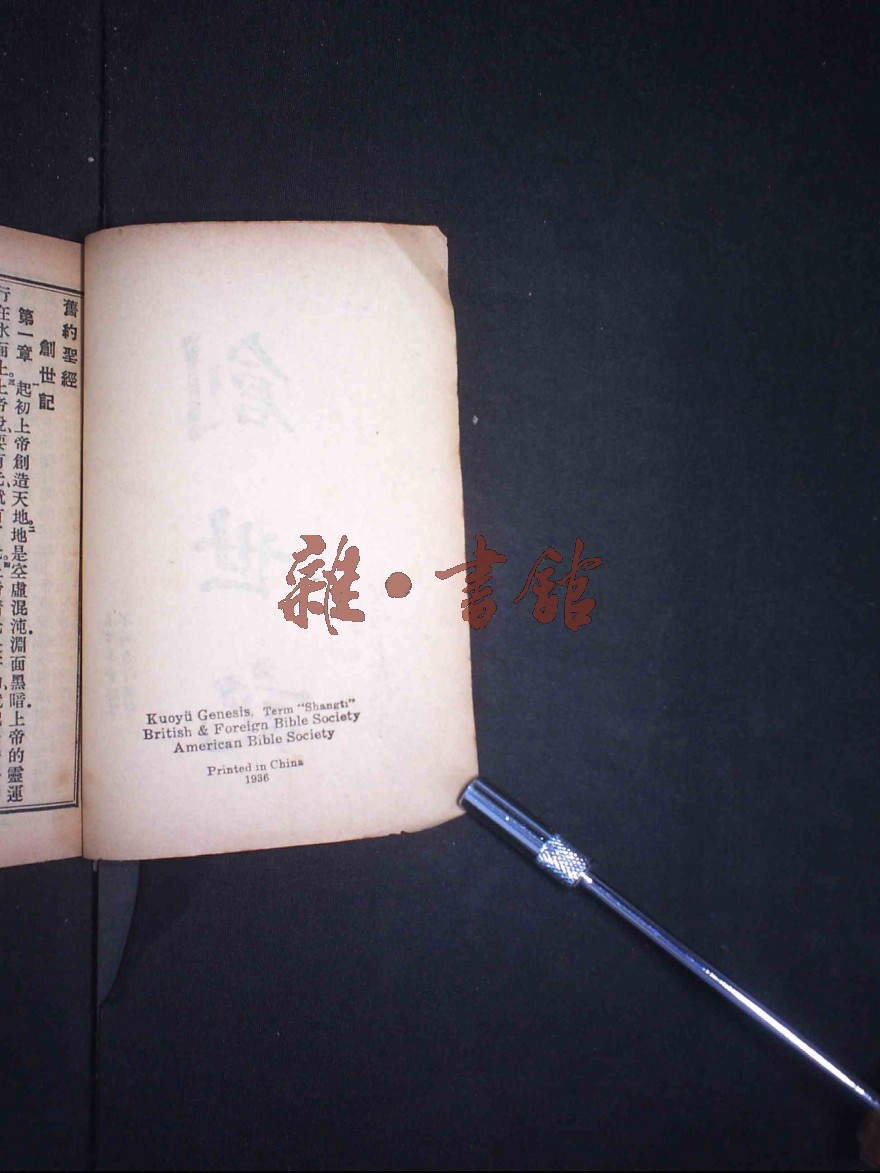 舊約聖經
創世記
第一章 起初上帝創造天地地是空虛混沌淵面黑暗上帝的靈運
行在水面上
Kuoyü Genesis, Term "Shangti"
British & Foreign Bible Society
American Bible Society
Printed in China
1936
雜•書館